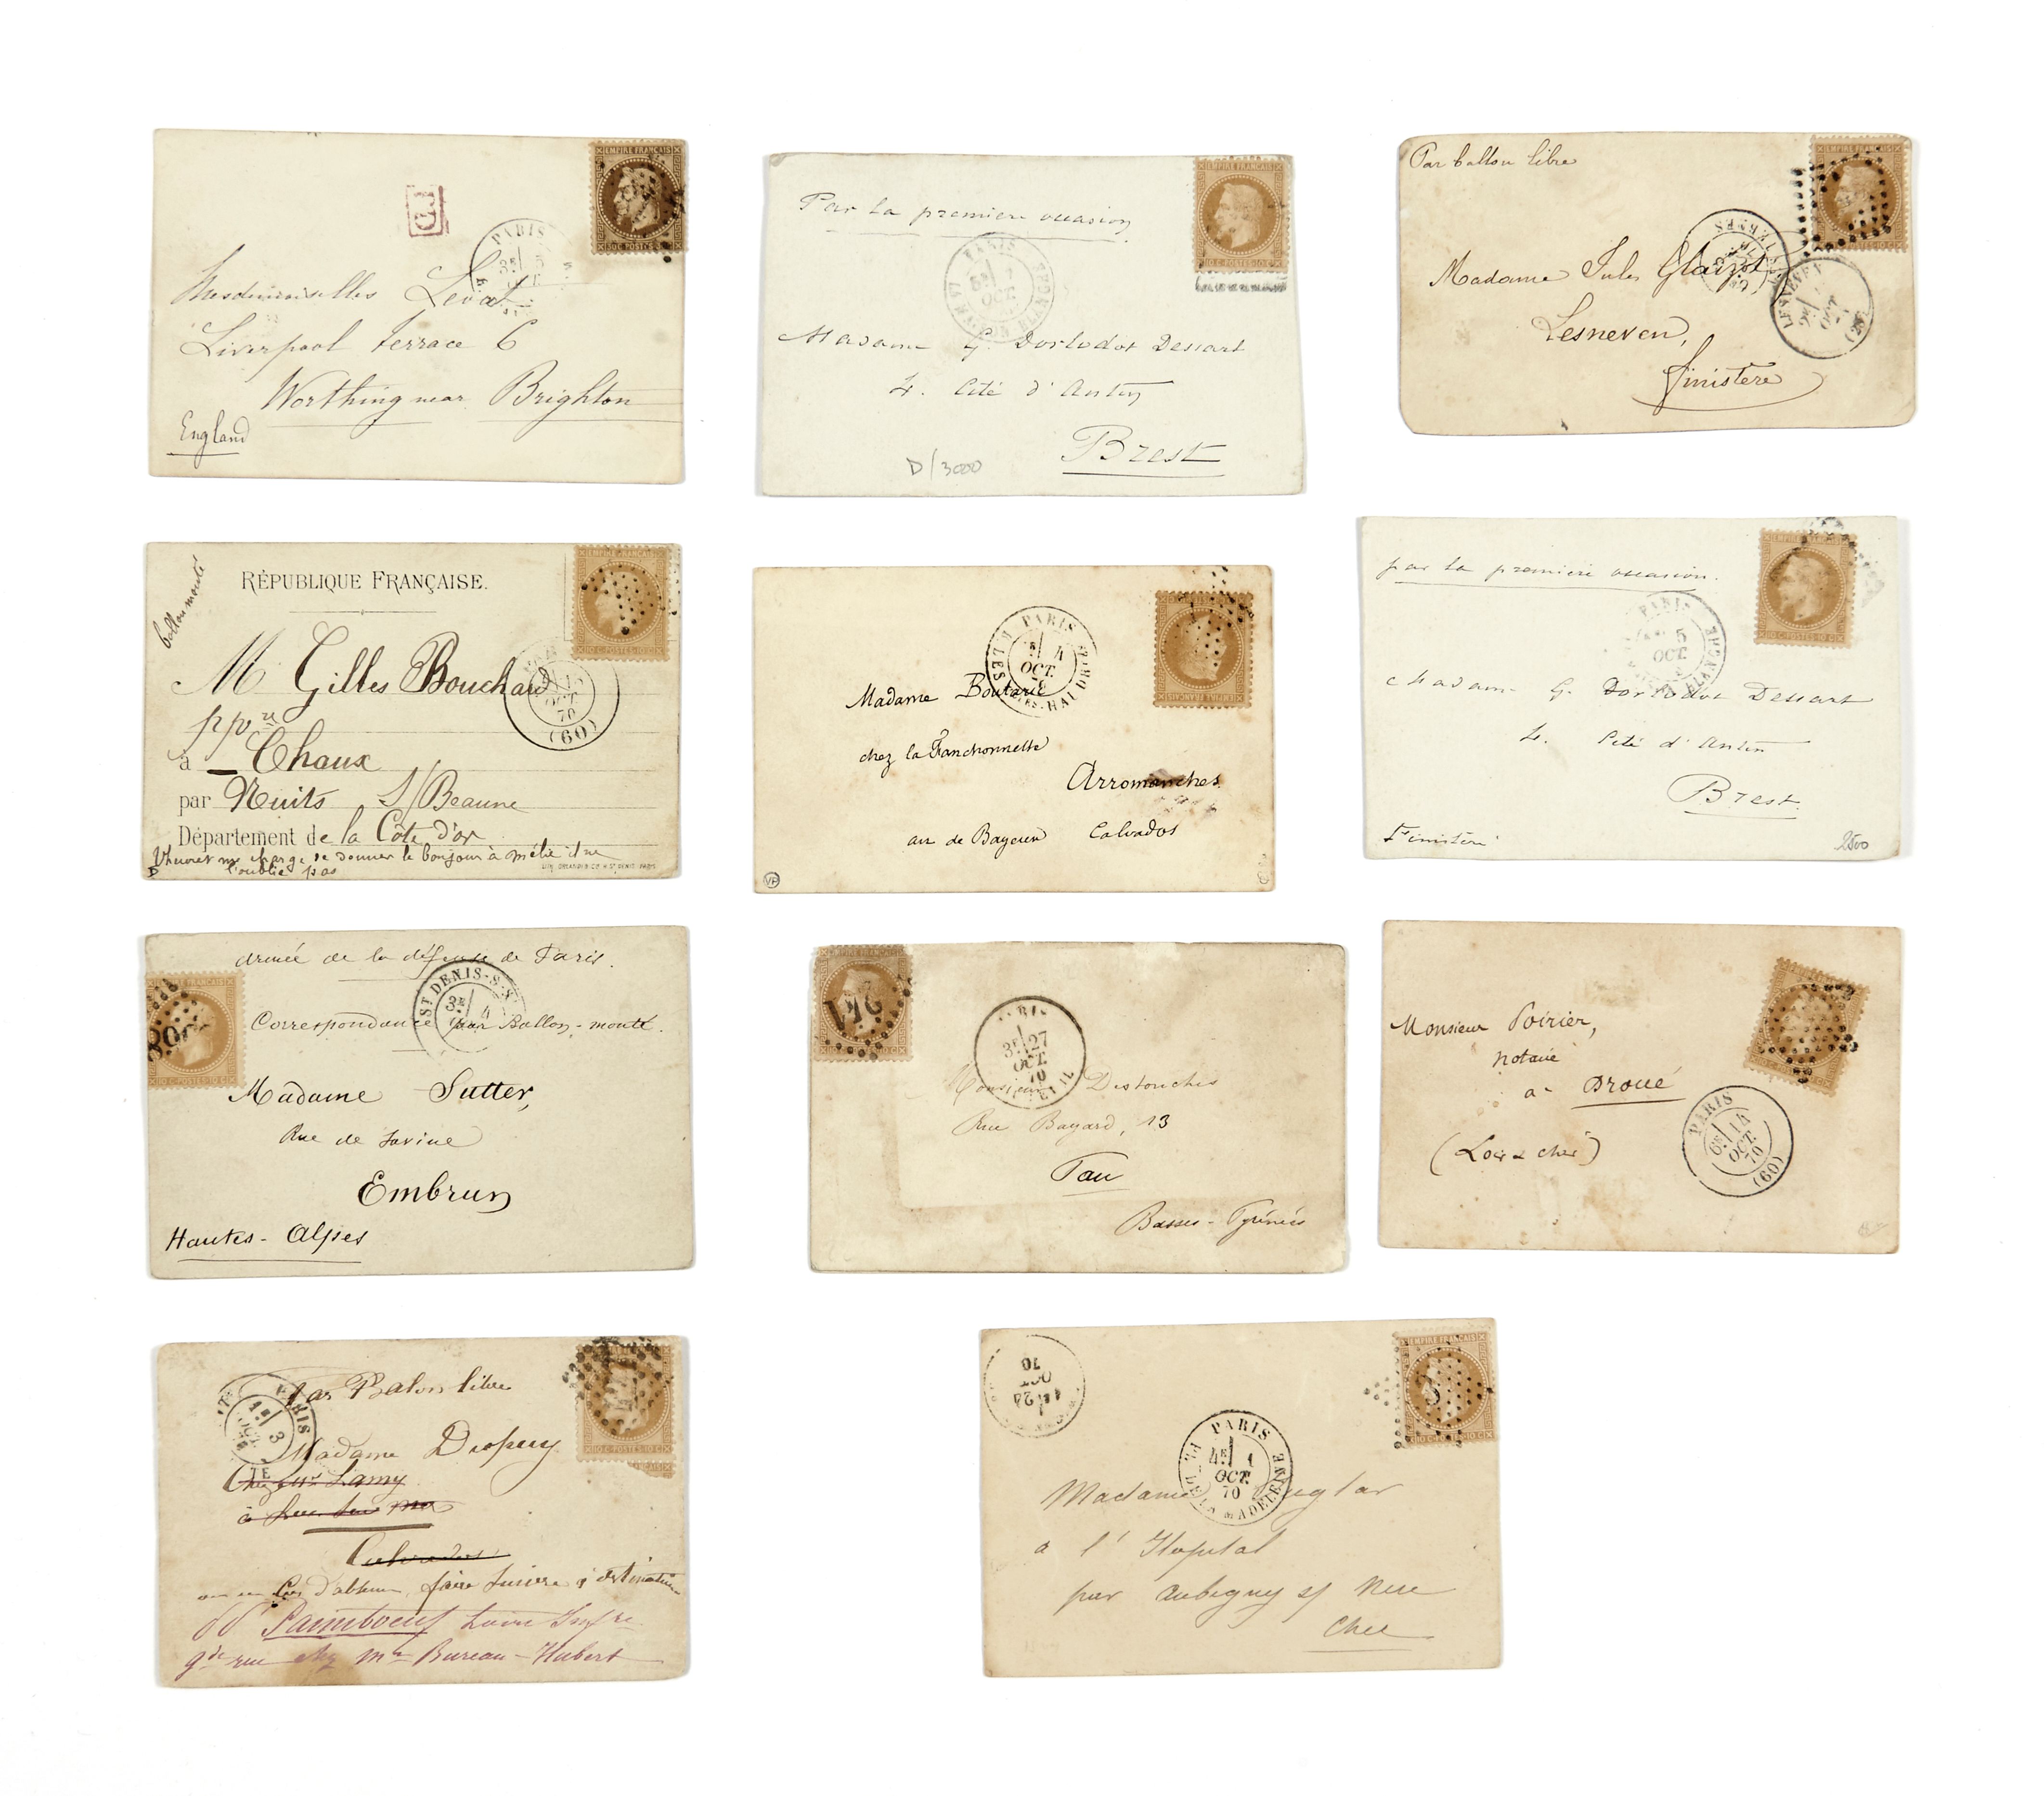 EMPIRE FRANCAIS
30 C. POSTES 30 C
PD
PARIS
3E 5
Mesdemoiselles Levat
Liverpool terrace 6
Worthing near Brighton
England
Par la première occasion
10 C. POSTES 10 C
PARIS
5E 1
OCT.
Madame G. Dorlodot Dessart
4. Cité d'Antin
Brest
D/3000
Par ballon libre
Madame Jules
Lesneven,
finistère
LESNEVEN
OCT.
(28)
ballon monté
RÉPUBLIQUE FRANÇAISE.
EMPIRE FRANCAIS
10 C. POSTES 10 C
M Gilles Bouchard
OCT.
70
(60)
ppre
à Chaux
par Nuits S/Beaune
Département de la Côte d'or
me charge de donner le bonjour à mélie il ne
l'oublie pas
PARIS
4
OCT.
70
R. LES HALLES
Madame Boutarie
chez la Fanchonnette
Arromanches
arr de Bayeux Calvados
VP
par la première occasion.
10 C. POSTES 10 C
PARIS
5
OCT.
Madame G. Dorlodot Dessart
4. Cité d'Antin
Brest.
finistère
2500
armée de la défense de Paris.
ST DENIS-S-S
3E 4
Correspondance par Ballon-monté.
10 C. POSTES 10 C
Madame Sutter,
Rue de Savine
Embrun
Hautes-Alpes
EMPIRE FRANCAIS
PARIS
3E 27
OCT.
70
Monsieur Destouches
Rue Bayard, 13
Pau
Basses-Pyrénées
Monsieur Poirier,
notaire
à Droué
(Loir & cher)
PARIS
6E 14
OCT.
70
(60)
Par Balon libre
PARIS
3
OCT.
Madame Dupuy
Chez Lamy
à
Calvados
en Cas d'absence, faire suivre à destination
Paimboeuf Loire Infre
gde rue chez Mr Bureau-Hubert
10 C. POSTES 10 C
24
OCT
70
EMPIRE FRANCAIS
10 C. POSTES 10 C
PARIS
4E 1
OCT.
70
PL. DE LA MADELEINE
Madame
a l'Hopital
par aubigny s/ Nere
Cher